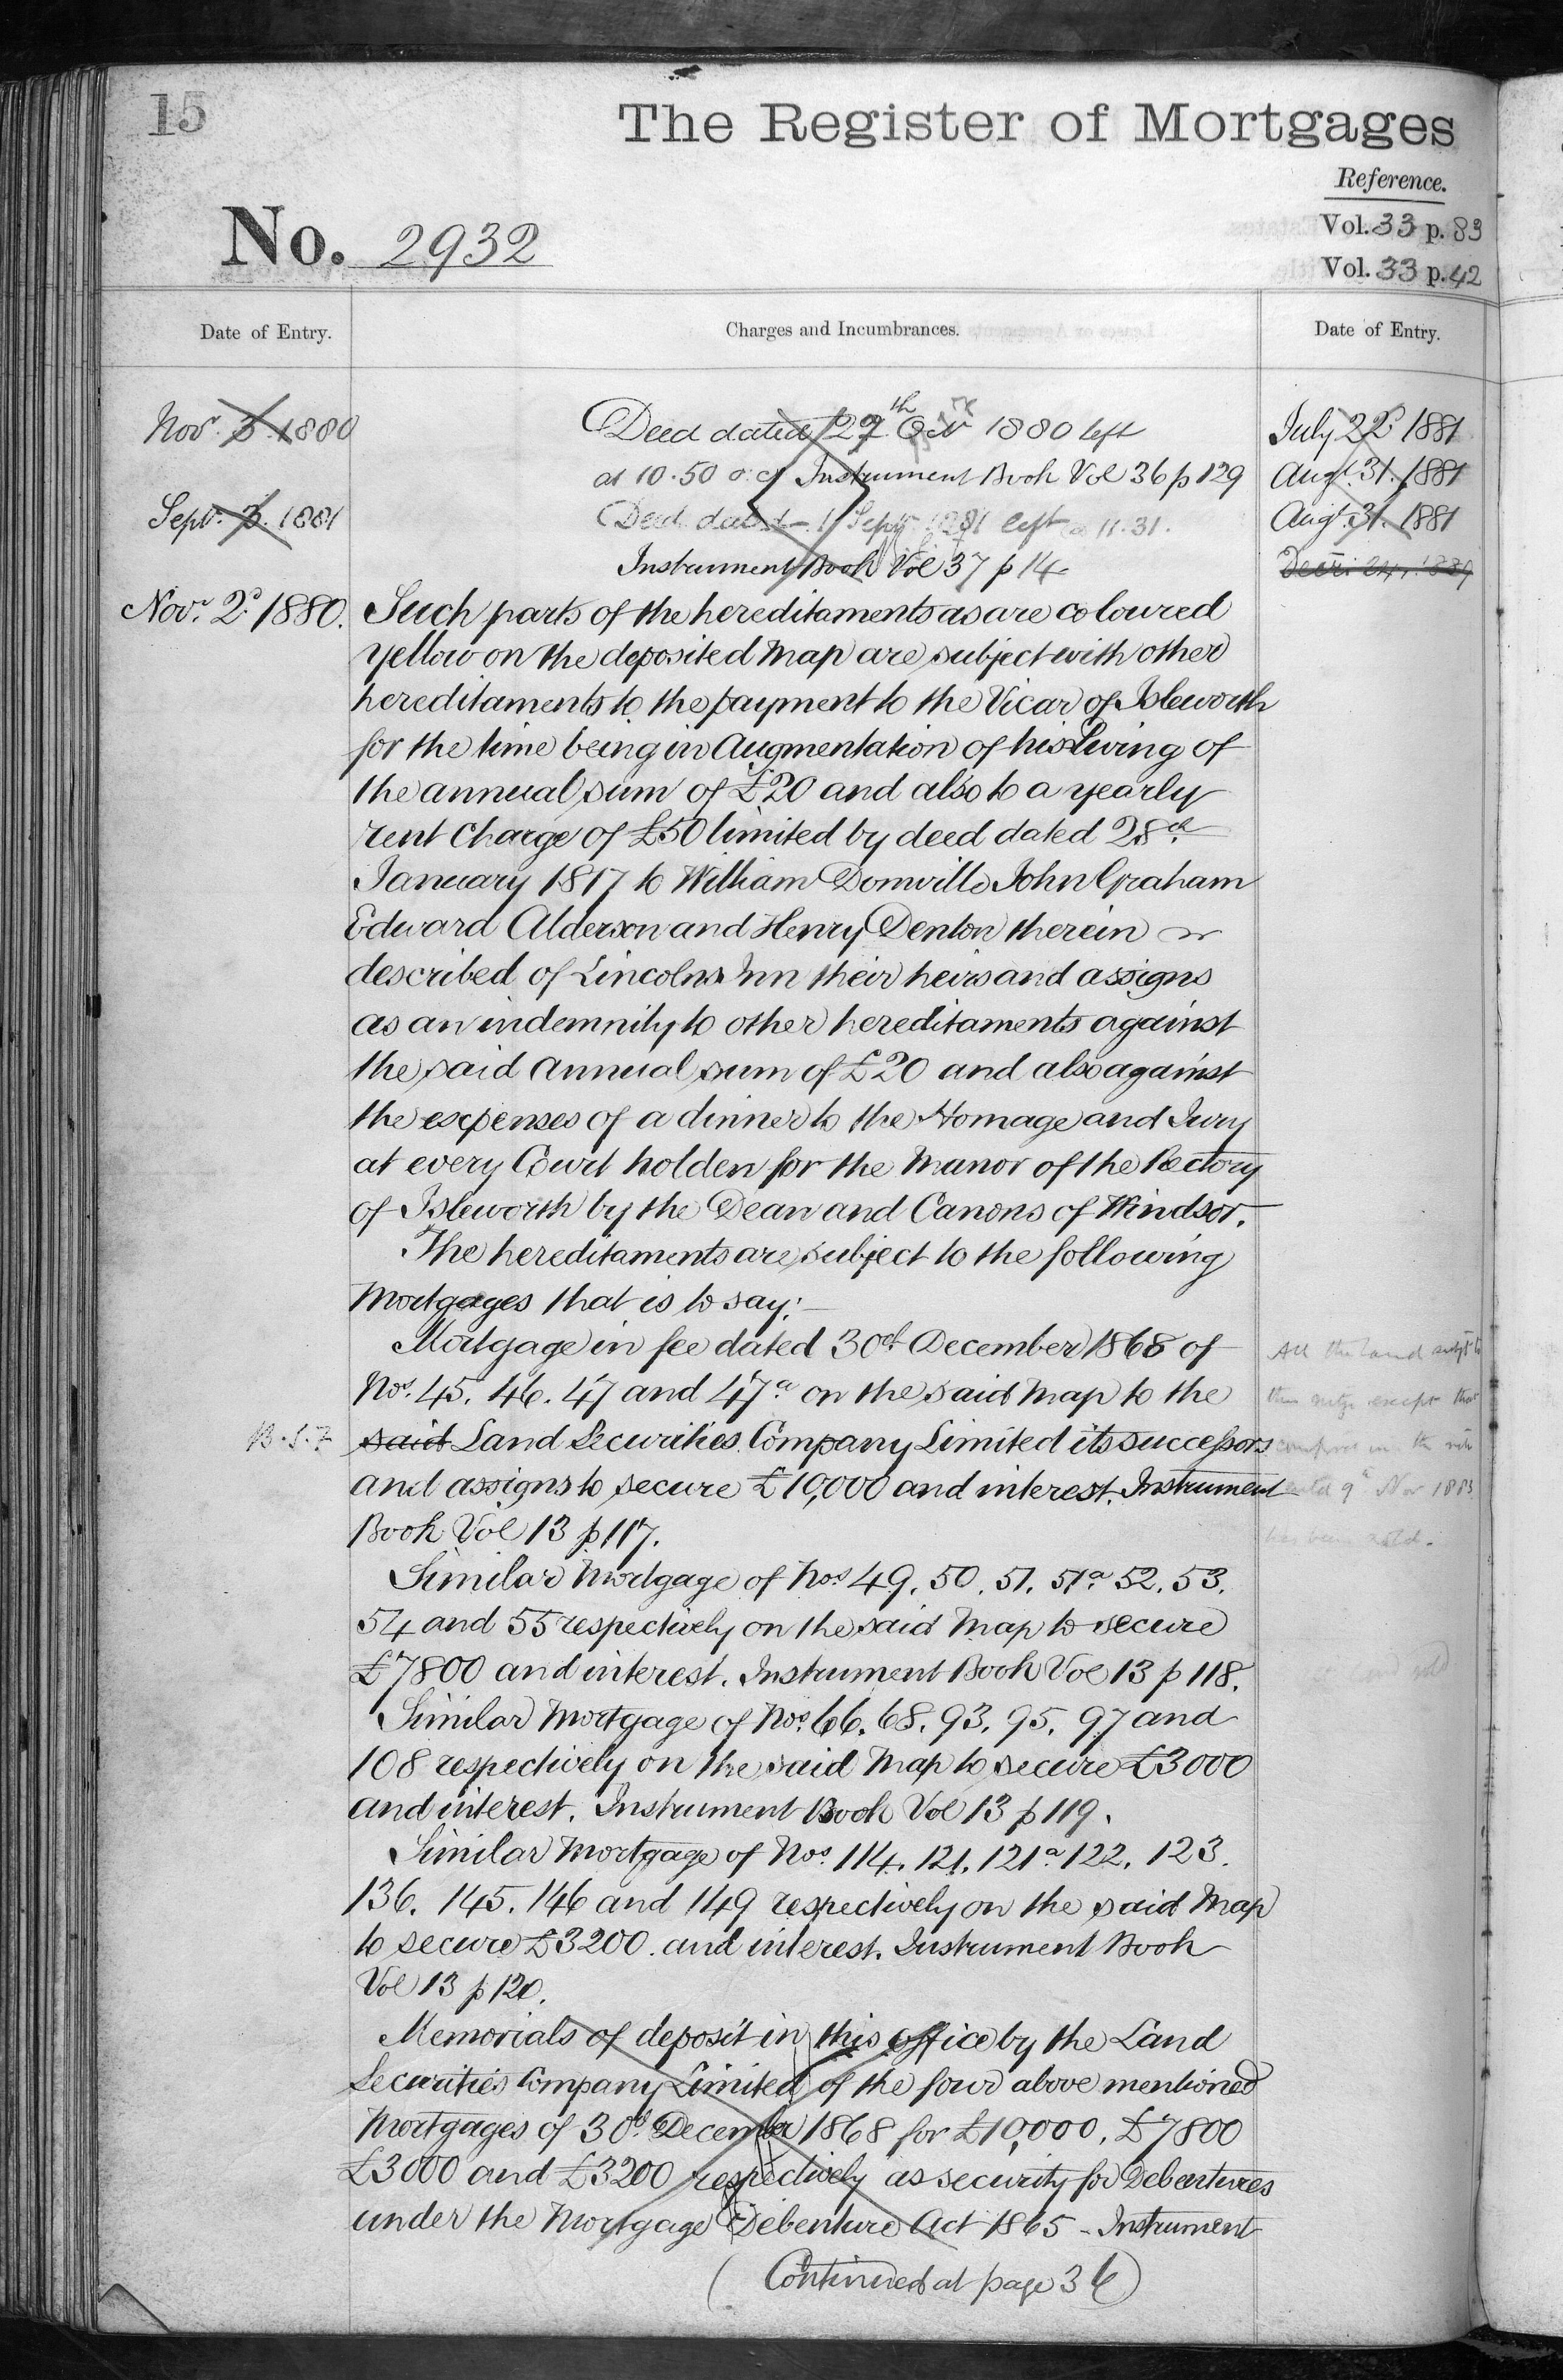 15
The Register of Mortgages
Reference.
Vol. 33 p. 83
Vol. 33 p. 42
No. 2932
Date of Entry.
Charges and Incumbrances.
Date of Entry.
Nov. 3. 1880
Deed dated 27th Oct 1880 left
July 22d 1881
at 10.50 o'c/ Instrument Book Vol 36 p 129
Augt. 31. 1881
Sepr. 3. 1881
Deed dated 1 Sepr 1881 left a 11.31.
Augt. 31. 1881
Instrument Book Vol 37 p 14
Decr. 24.
Novr. 2d 1880.
Such parts of the hereditaments as are coloured
Yellow on the deposited Map are subject with other
hereditaments to the payment to the Vicar of Isleworth
for the time being in Augmentation of his Living of
the annual sum of £20 and also to a yearly
rent Charge of £50 limited by deed dated 28th
January 1817 to William Domville John Graham
Edward Alderson and Henry Denton therein
described of Lincolns Inn their heirs and assigns
as an indemnity to other hereditaments against
the said Annual sum of £20 and also against
the expenses of a dinner to the Homage and Jury
at every Court holden for the Manor of the Rectory
of Isleworth by the Dean and Canons of Windsor.
The hereditaments are subject to the following
Mortgages that is to say:—
Mortgage in fee dated 30th December 1868 of
Nos. 45. 46. 47 and 47a on the said Map to the
said Land Securities Company Limited its successors
and assigns to secure £10,000 and interest. Instrument
Book Vol 13 p 117.
All the land subjt to
this mtge except that
comprised in the
9th Nov 1883
has been sold.
B.S.7
Similar Mortgage of Nos 49. 50. 51. 51a 52. 53.
54 and 55 respectively on the said Map to secure
£7800 and interest. Instrument Book Vol 13 p 118.
Similar Mortgage of Nos. 66. 68. 93. 95. 97 and
108 respectively on the said Map to secure £3000
and interest. Instrument Book Vol 13 p 119.
Similar Mortgage of Nos. 114. 121. 121a 122. 123.
136. 145. 146 and 149 respectively on the said Map
to secure £3200. and interest. Instrument Book
Vol 13 p 120.
Memorials of deposit in this office by the Land
Securities Company Limited of the four above mentioned
Mortgages of 30th December 1868 for £10,000, £7800
£3000 and £3200 respectively as security for Debentures
under the Mortgage Debenture Act 1865 - Instrument
(Continued at page 36)